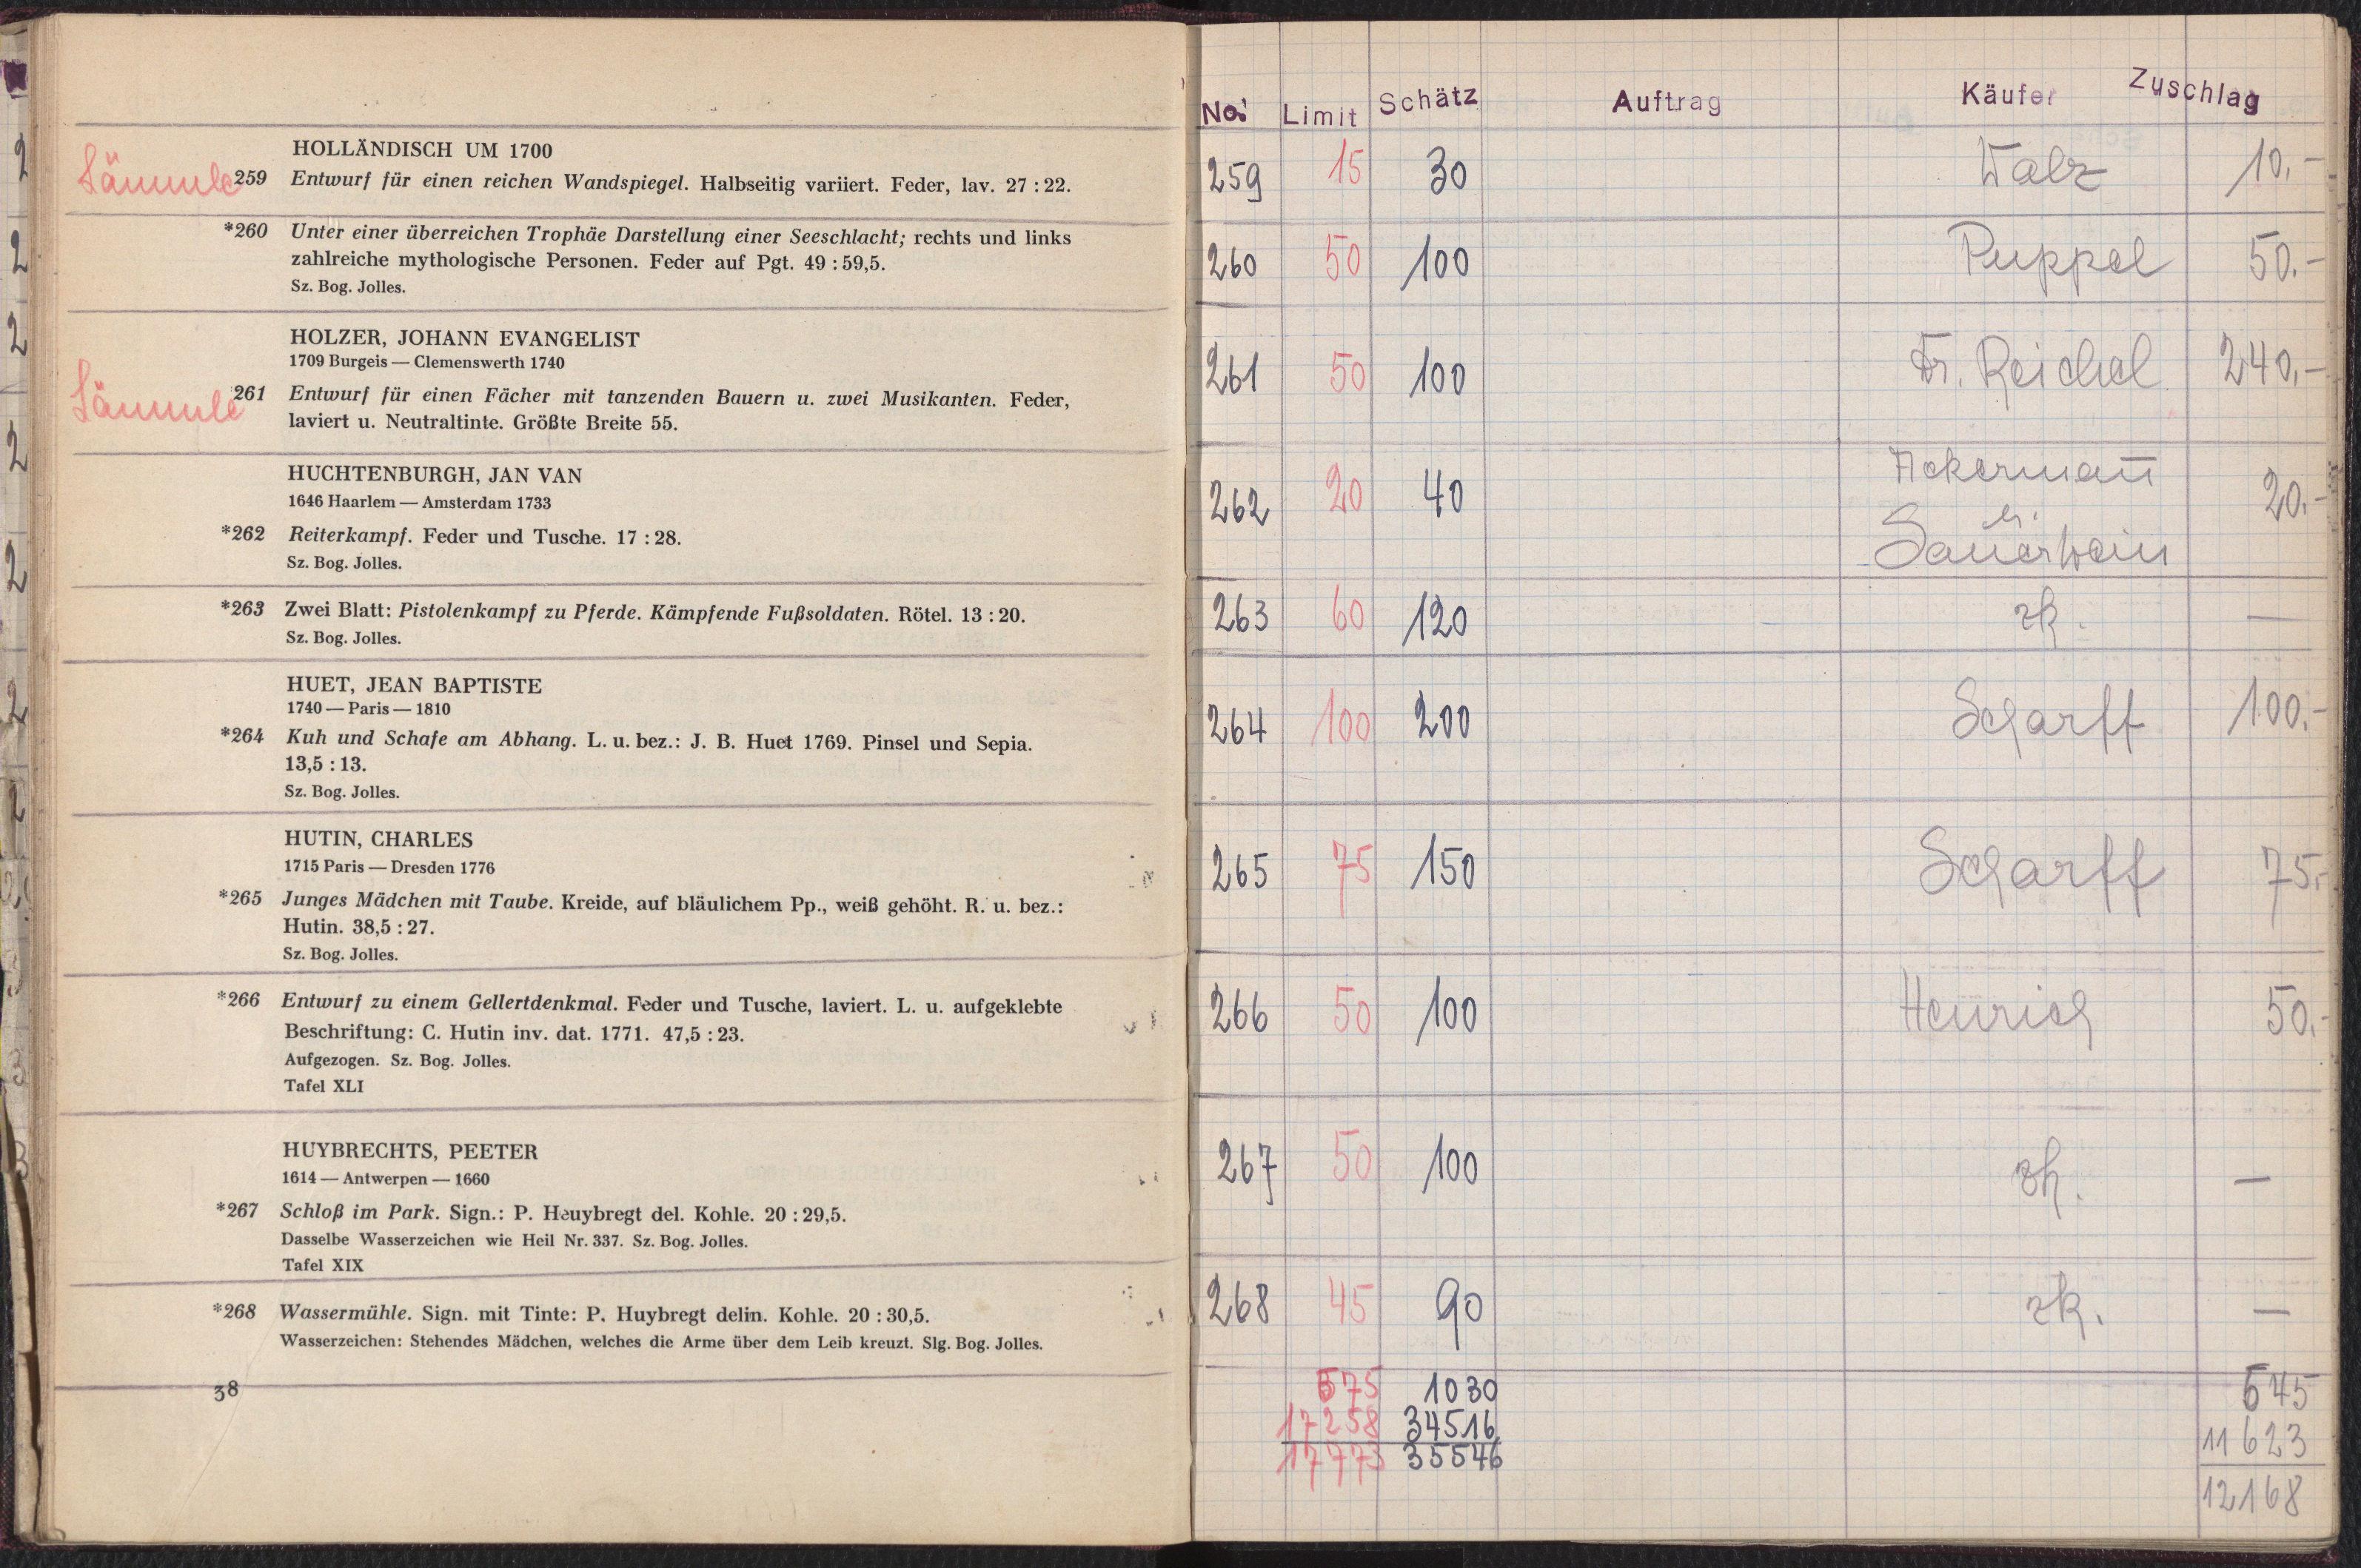 HOLLÄNDISCH UM 1700
Lämmle 259 Entwurf für einen reichen Wandspiegel. Halbseitig variiert. Feder, lav. 27 : 22.
*260 Unter einer überreichen Trophäe Darstellung einer Seeschlacht; rechts und links
zahlreiche mythologische Personen. Feder auf Pgt. 49 : 59,5.
Sz. Bog. Jolles.
HOLZER, JOHANN EVANGELIST
1709 Burgeis — Clemenswerth 1740
Lämmle 261 Entwurf für einen Fächer mit tanzenden Bauern u. zwei Musikanten. Feder,
laviert u. Neutraltinte. Größte Breite 55.
HUCHTENBURGH, JAN VAN
1646 Haarlem — Amsterdam 1733
*262 Reiterkampf. Feder und Tusche. 17 : 28.
Sz. Bog. Jolles.
*263 Zwei Blatt: Pistolenkampf zu Pferde. Kämpfende Fußsoldaten. Rötel. 13 : 20.
Sz. Bog. Jolles.
HUET, JEAN BAPTISTE
1740 — Paris — 1810
*264 Kuh und Schafe am Abhang. L. u. bez.: J. B. Huet 1769. Pinsel und Sepia.
13,5 : 13.
Sz. Bog. Jolles.
HUTIN, CHARLES
1715 Paris — Dresden 1776
*265 Junges Mädchen mit Taube. Kreide, auf bläulichem Pp., weiß gehöht. R. u. bez.:
Hutin. 38,5 : 27.
Sz. Bog. Jolles.
*266 Entwurf zu einem Gellertdenkmal. Feder und Tusche, laviert. L. u. aufgeklebte
Beschriftung: C. Hutin inv. dat. 1771. 47,5 : 23.
Aufgezogen. Sz. Bog. Jolles.
Tafel XLI
HUYBRECHTS, PEETER
1614 — Antwerpen — 1660
*267 Schloß im Park. Sign.: P. Heuybregt del. Kohle. 20 : 29,5.
Dasselbe Wasserzeichen wie Heil Nr. 337. Sz. Bog. Jolles.
Tafel XIX
*268 Wassermühle. Sign. mit Tinte: P. Huybregt delin. Kohle. 20 : 30,5.
Wasserzeichen: Stehendes Mädchen, welches die Arme über dem Leib kreuzt. Slg. Bog. Jolles.
38
No. Limit Schätz Auftrag Käufer Zuschlag
259 15 30 Walz 10.-
260 50 100 Puppel 50.-
261 50 100 Dr. Reichel 240.-
262 20 40 Ackermañ
20.-
Sauerwein
263 60 120 zk. —
264 100 200 Scharff 100.-
265 75 150 Scharff 75.-
266 50 100 Henrich 50.-
267 50 100 zk. —
268 45 90 zk. —
575 1030 545
17258 34516 11623
17773 35546 12168